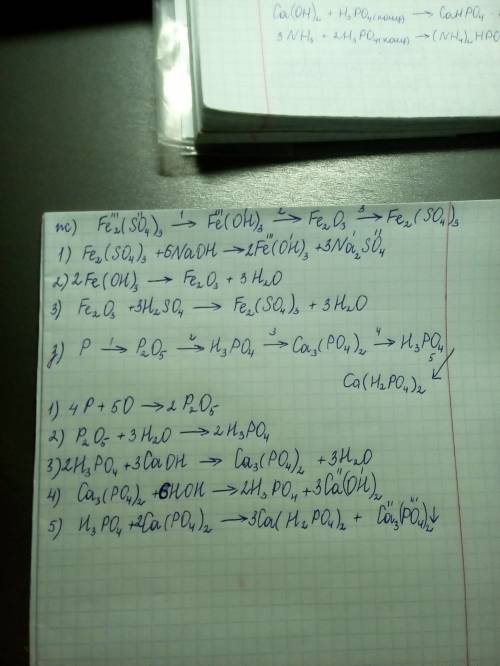 Ca(OH)₂ + H₃PO₄(конц) → CaHPO₄
3NH₃ + 2H₃PO₄(конц) → (NH₄)₂HPO
ж) Fe₂(SO₄)₃ →¹ Fe(OH)₃ →² Fe₂O₃ →³ Fe₂(SO₄)₃
1) Fe₂(SO₄)₃ + 6NaOH → 2Fe(OH)₃ + 3Na₂SO₄
2) 2Fe(OH)₃ → Fe₂O₃ + 3H₂O
3) Fe₂O₃ + 3H₂SO₄ → Fe₂(SO₄)₃ + 3H₂O
з) P →¹ P₂O₅ →² H₃PO₄ →³ Ca₃(PO₄)₂ →⁴ H₃PO₄
5
Ca(H₂PO₄)₂
1) 4P + 5O → 2P₂O₅
2) P₂O₅ + 3H₂O → 2H₃PO₄
3) 2H₃PO₄ + 3CaOH → Ca₃(PO₄)₂ + 3H₂O
4) Ca₃(PO₄)₂ + 6HOH → 2H₃PO₄ + 3Ca(OH)₂
5) H₃PO₄ + 2Ca(PO₄)₂ → 3Ca(H₂PO₄)₂ + Ca₃(PO₄)₂↓